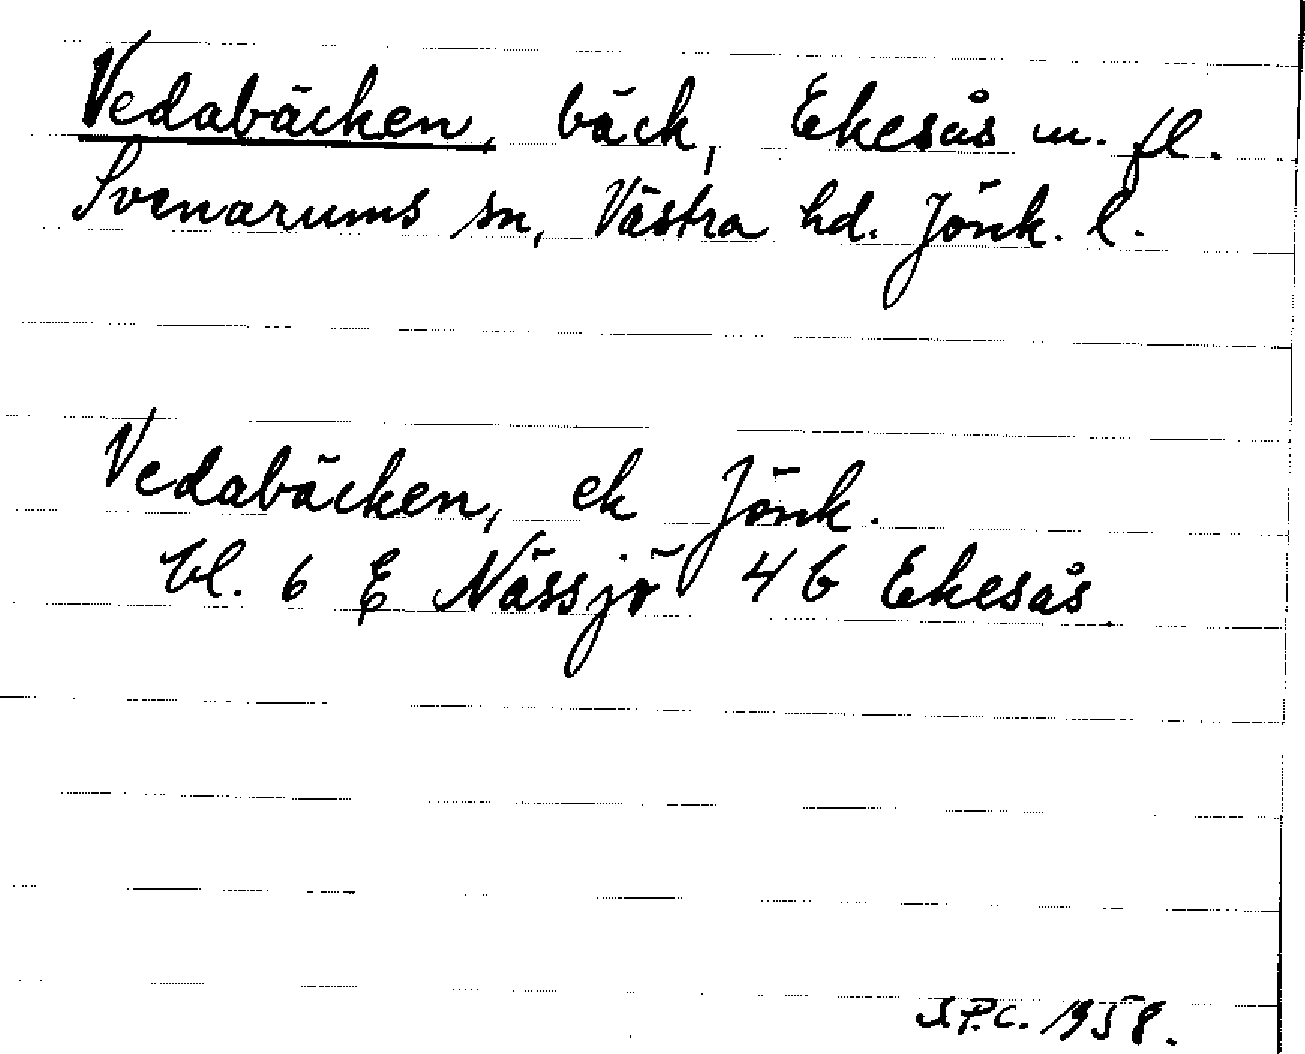 Vedabäcken, bäck, Ekesås m. fl.
Svenarums sn, Västra hd. Jönk. l.
Vedabäcken, ek Jönk.
bl. 6 E Nässjö 4 b Ekesås.
S.P.C. 1958.